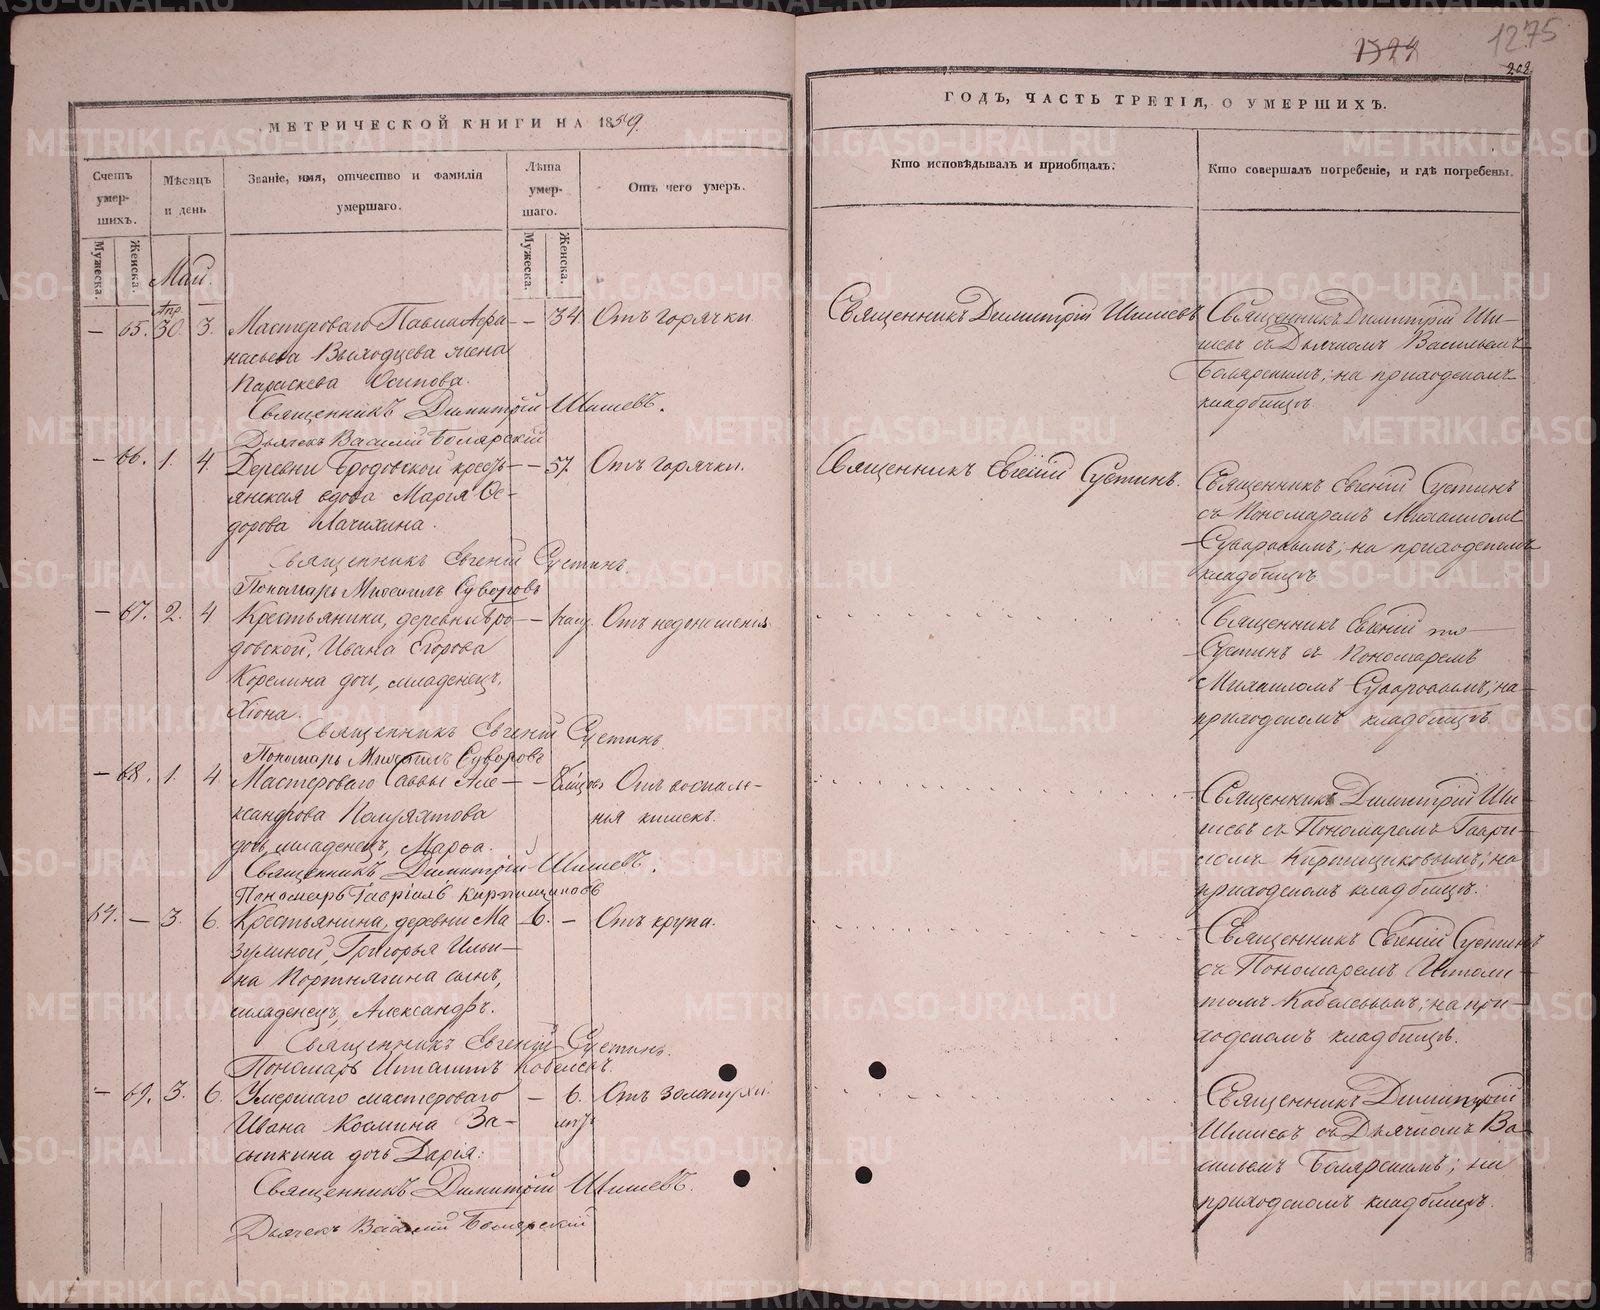 1324
1275
202
МЕТРИЧЕСКОЙ КНИГИ НА 1859.
ГОДЪ, ЧАСТЬ ТРЕТІЯ, О УМЕРШИХЪ.
Счетъ умер-шихъ.
Мѣсяцъ и день
Званіе, имя, отчество и фамилія умершаго.
Лѣта умер-шаго.
Отъ чего умеръ.
Кто исповѣдывалъ и приобщалъ.
Кто совершалъ погребеніе, и гдѣ погребены.
Мужеска. Женска.
Мужеска. Женска.
Май.
Апр.
— 65. 30. 3. Мастероваго Павла Афа- — 34 Отъ горячки.
насьева Выходцева жена
Параскева Осипова.
Священникъ Димитрій Шишевъ.
Дьячекъ Василій Боярскій
Священникъ Димитрій Шишевъ
Священникъ Димитрій Ши-
шевъ съ Дьячкомъ Васильемъ
Боярскимъ; на приходскомъ
кладбищѣ.
— 66. 1. 4. Деревни Бродовской кресть- — 57. Отъ горячки.
янская вдова Марія Ѳе-
дорова Лачихина.
Священникъ Евгеній Сустинъ.
Пономарь Михаилъ Суворовъ
Священникъ Евгеній Сустинъ.
Священникъ Евгеній Сустинъ
съ Пономаремъ Михаиломъ
Суворовымъ; на приходскомъ
кладбищѣ.
— 67. 2. 4 Крестьянина, деревни Бро- — Отъ недоношенія
довской, Ивана Егорова
Корелина дочь, младенецъ,
Хіона.
Священникъ Евгеній Сустинъ.
Пономарь Михаилъ Суворовъ
Священникъ Евгеній
Сустинъ съ Пономаремъ
Михаиломъ Суворовымъ; на
приходскомъ кладбищѣ.
— 68. 1. 4 Мастероваго Саввы Але- — Отъ воспале-
ксандрова Полуяхтова нія кишекъ.
дочь, младенецъ, Марѳа.
Священникъ Димитрій Шишевъ.
Пономарь Гавріилъ Кирпищиковъ
Священникъ Димитрій Ши-
шевъ съ Пономаремъ Гаврі-
иломъ Кирпищиковымъ; на
приходскомъ кладбищѣ.
64. — 3. 6. Крестьянина, деревни Ма- 6. — Отъ крупа.
зулиной, Григорья Ильи-
на Портнягина сынъ,
младенецъ, Александръ.
Священникъ Евгеній Сустинъ.
Пономарь Ипполитъ Кобелевъ.
Священникъ Евгеній Сустинъ
съ Пономаремъ Ипполи-
томъ Кобелевымъ; на при-
ходскомъ кладбищѣ.
— 69. 3. 6. Умершаго мастероваго — 6. Отъ золотухи.
Ивана Космина За-
сыпкина дочь Дарія.
Священникъ Димитрій Шишевъ.
Дьячекъ Василій Боярскій
Священникъ Димитрій
Шишевъ съ Дьячкомъ Ва-
сильемъ Боярскимъ; на
приходскомъ кладбищѣ.
METRIKI.GASO-URAL.RU